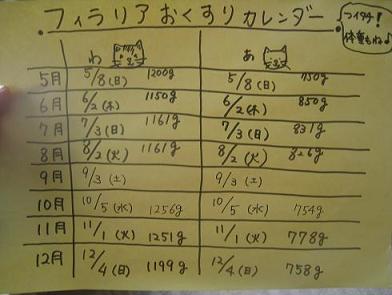 フィラリアおくすりカレンダー
ついたち!
体重もね♪
わ あ
5月 5/8(日) 1200g 5/8(日) 750g
6月 6/2(木) 1150g 6/2(木) 850g
7月 7/3(日) 1161g 7/3(日) 831g
8月 8/2(火) 1161g 8/2(火) 826g
9月 9/3(土) 9/3(土)
10月 10/5(水) 1256g 10/5(水) 754g
11月 11/1(火) 1251g 11/1(火) 778g
12月 12/4(日) 1199g 12/4(日) 758g